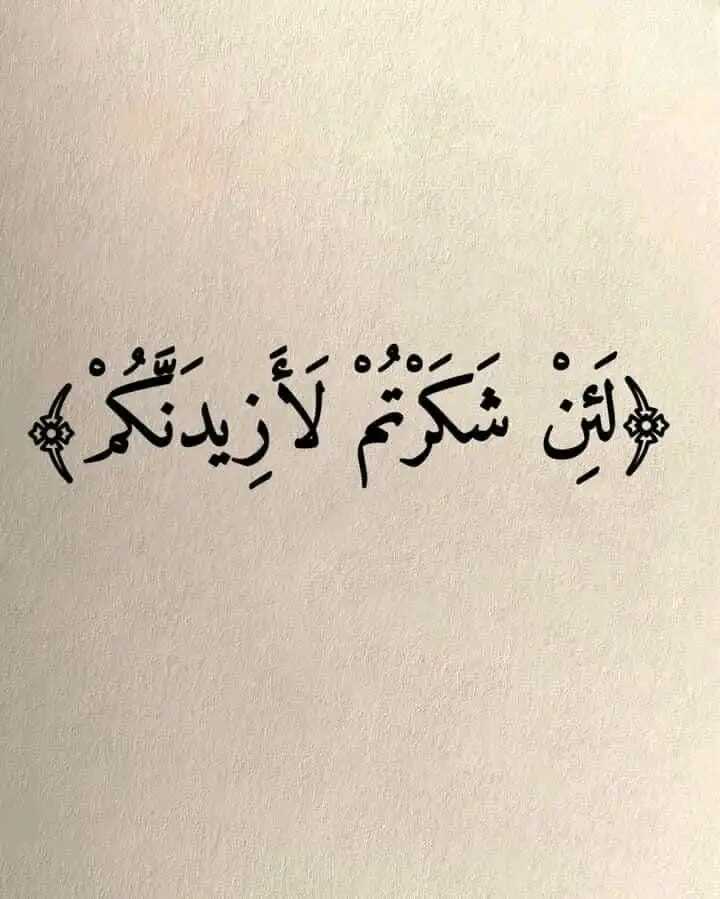 ﴿لَئِنْ شَكَرْتُمْ لَأَزِيدَنَّكُمْ﴾